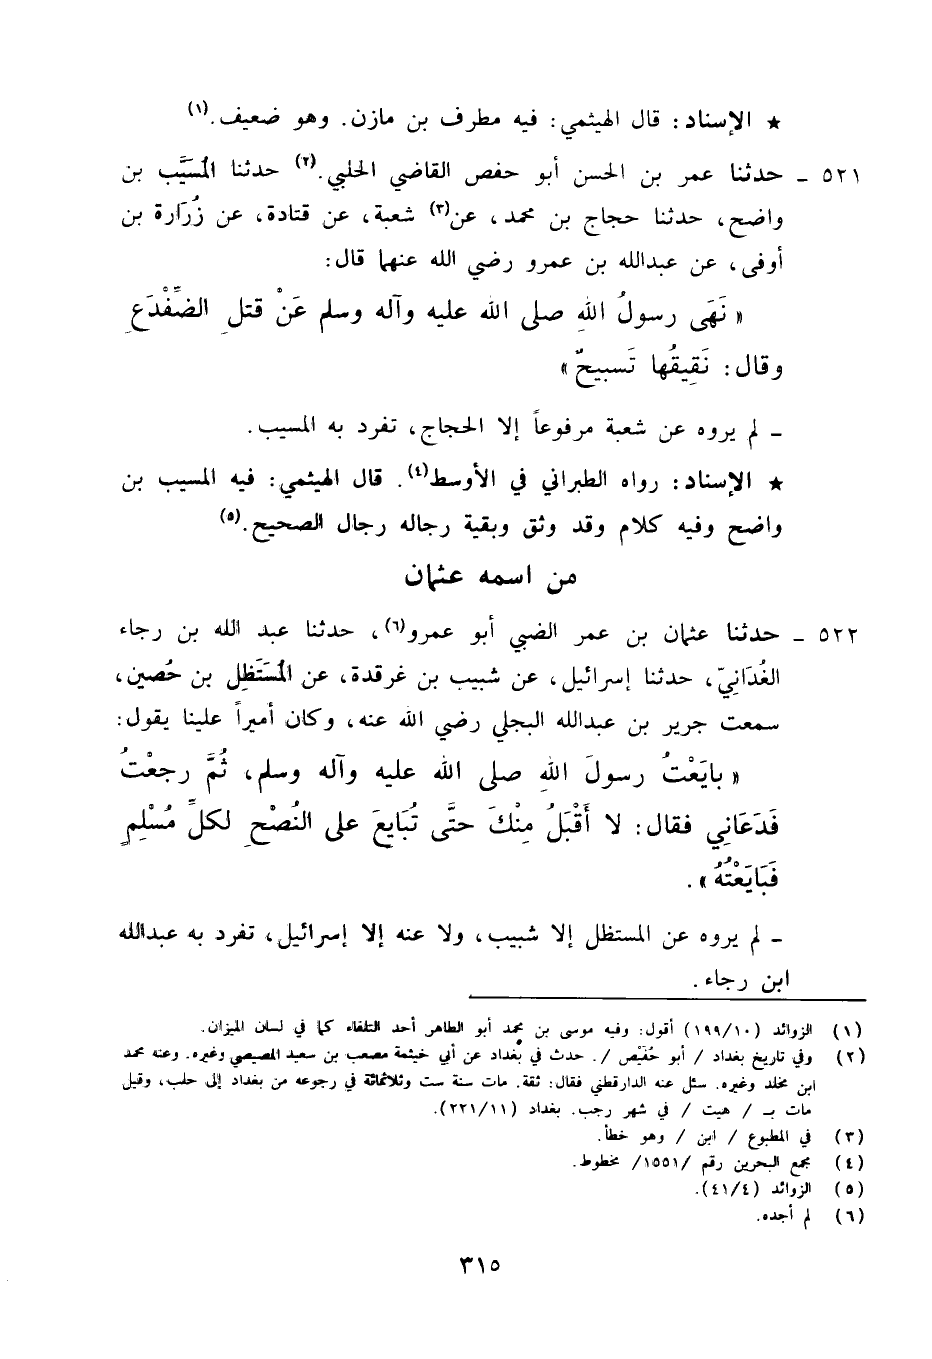 ★ الإسناد: قال الهيثمي: فيه مطرف بن مازن. وهو ضعيف.(١)
٥٢١ - حدثنا عمر بن الحسن أبو حفص القاضي الحلبي.(٢) حدثنا المُسَيَّب بن
واضح، حدثنا حجاج بن محمد، عن(٣) شعبة، عن قتادة، عن زُرَارة بن
أوفى، عن عبدالله بن عمرو رضي الله عنهما قال:
« نَهَى رسولُ اللهِ صلى الله عليه وآله وسلم عَنْ قتلِ الضِّفْدَعِ
وقال: نَقِيقُها تَسبيحٌ »
- لم يروه عن شعبة مرفوعاً إلا الحجاج، تفرد به المسيب.
★ الإسناد: رواه الطبراني في الأوسط(٤). قال الهيثمي: فيه المسيب بن
واضح وفيه كلام وقد وثق وبقية رجاله رجال الصحيح.(٥)
من اسمه عثمان
٥٢٢ - حدثنا عثمان بن عمر الضبي أبو عمرو(٦)، حدثنا عبد الله بن رجاء
الغُدَانيّ، حدثنا إسرائيل، عن شبيب بن غرقدة، عن المُسْتَظِل بن حُصين،
سمعت جرير بن عبدالله البجلي رضي الله عنه، وكان أميراً علينا يقول:
« بايَعْتُ رسولَ اللهِ صلى الله عليه وآله وسلم، ثُمَّ رجعْتُ
فَدَعَاني فقال: لا أَقْبَلُ مِنْكَ حتَّى تُبَايعَ على النُصْحِ لكلِّ مُسْلِمٍ
فَبَايَعْتُهُ ».
- لم يروه عن المستظل إلا شبيب، ولا عنه إلا إسرائيل، تفرد به عبدالله
ابن رجاء.
(١) الزوائد (١٩٩/١٠) أقول: وفيه موسى بن محمد أبو الطاهر أحد التلفاء كما في لسان الميزان.
(٢) وفي تاريخ بغداد / أبو حُفَيْص /. حدث في بغداد عن أبي خيثمة مصعب بن سعيد المصيصي وغيره. وعنه محمد
ابن مخلد وغيره. سئل عنه الدارقطني فقال: ثقة. مات سنة ست وثلاثمائة في رجوعه من بغداد إلى حلب، وقيل
مات بـ / هيت / في شهر رجب. بغداد (٢٢١/١١).
(٣) في المطبوع / ابن / وهو خطأ.
(٤) مجمع البحرين رقم /١٥٥١/ مخطوط.
(٥) الزوائد (٤١/٤).
(٦) لم أجده.
٣١٥